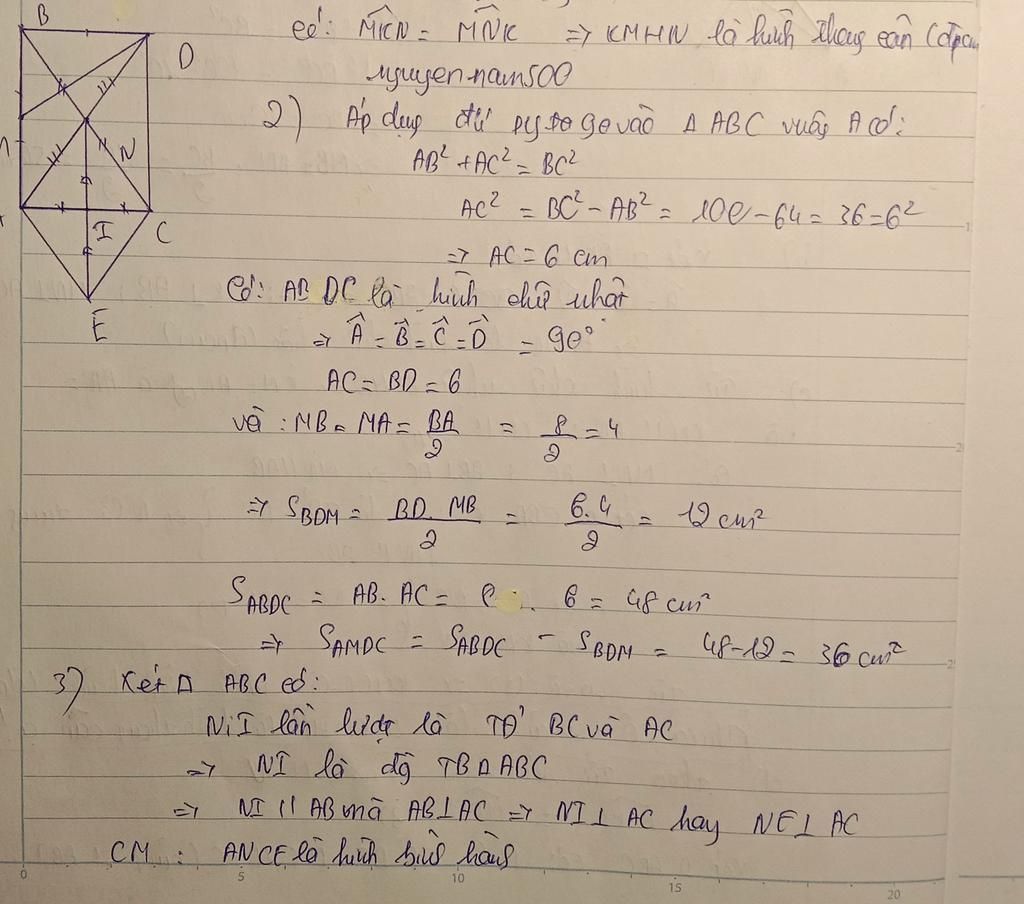 B
D
N
I
C
E
có: MKN = MNK => KMHN là hình thang cân (đpcm
nguyen-nam500
2) Áp dụng đ/l pytago vào Δ ABC vuông A có:
AB² + AC² = BC²
AC² = BC² - AB² = 100 - 64 = 36 = 6²
=> AC = 6 cm
Có: ABDC là hình chữ nhật
=> Â = B̂ = Ĉ = D̂ = 90°
AC = BD = 6
và : MB = MA = BA/2 = 8/2 = 4
=> S_BDM = BD. MB/2 = 6.4/2 = 12 cm²
S_ABDC = AB. AC = 8 . 6 = 48 cm²
=> S_AMDC = S_ABDC - S_BDM = 48-12 = 36 cm²
3) Xét Δ ABC có:
N; I lần lượt là TĐ' BC và AC
=> NI là đg TB Δ ABC
=> NI // AB mà AB ⊥ AC => NI ⊥ AC hay NE ⊥ AC
CM : ANCE là hình bình hành
0 5 10 15 20